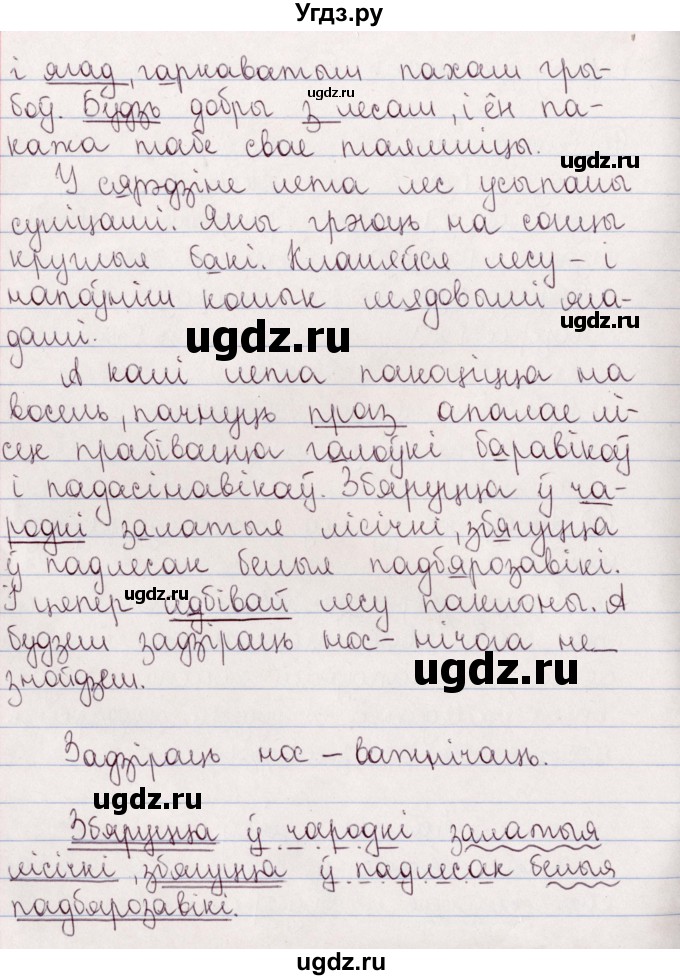 Угдз.ру
і ягад, гаркаватым пахам гры-
боў. Будзь добры з лесам, і ён па-
кажа табе свае таямніцы.
У сярэдзіне лета лес усыпаны
суніцамі. Яны грэюць на сонцы
круглыя бакі. Кланяйся лесу – і
напоўніш кошык мядовымі яга-
дамі.
А калі лета пакоціцца на
восень, пачнуць праз апалае лі-
сце прабівацца галоўкі баравікоў
і падасінавікаў. Збяруцца ў ча-
родкі залатыя лісічкі, збягуцца
ў падлесак белыя падбярозавікі.
І цяпер адбівай лесу паклоны. А
будзеш задзіраць нос – нічога не
знойдзеш.
Задзіраць нос – важнічаць.
Збяруцца ў чародкі залатыя
лісічкі, збягуцца ў падлесак белыя
падбярозавікі.
ugdz.ru
ugdz.ru
ugdz.ru
ugdz.ru
ugdz.ru
ugdz.ru
ugdz.ru
ugdz.ru
ugdz.ru
ugdz.ru
Угдз.ру